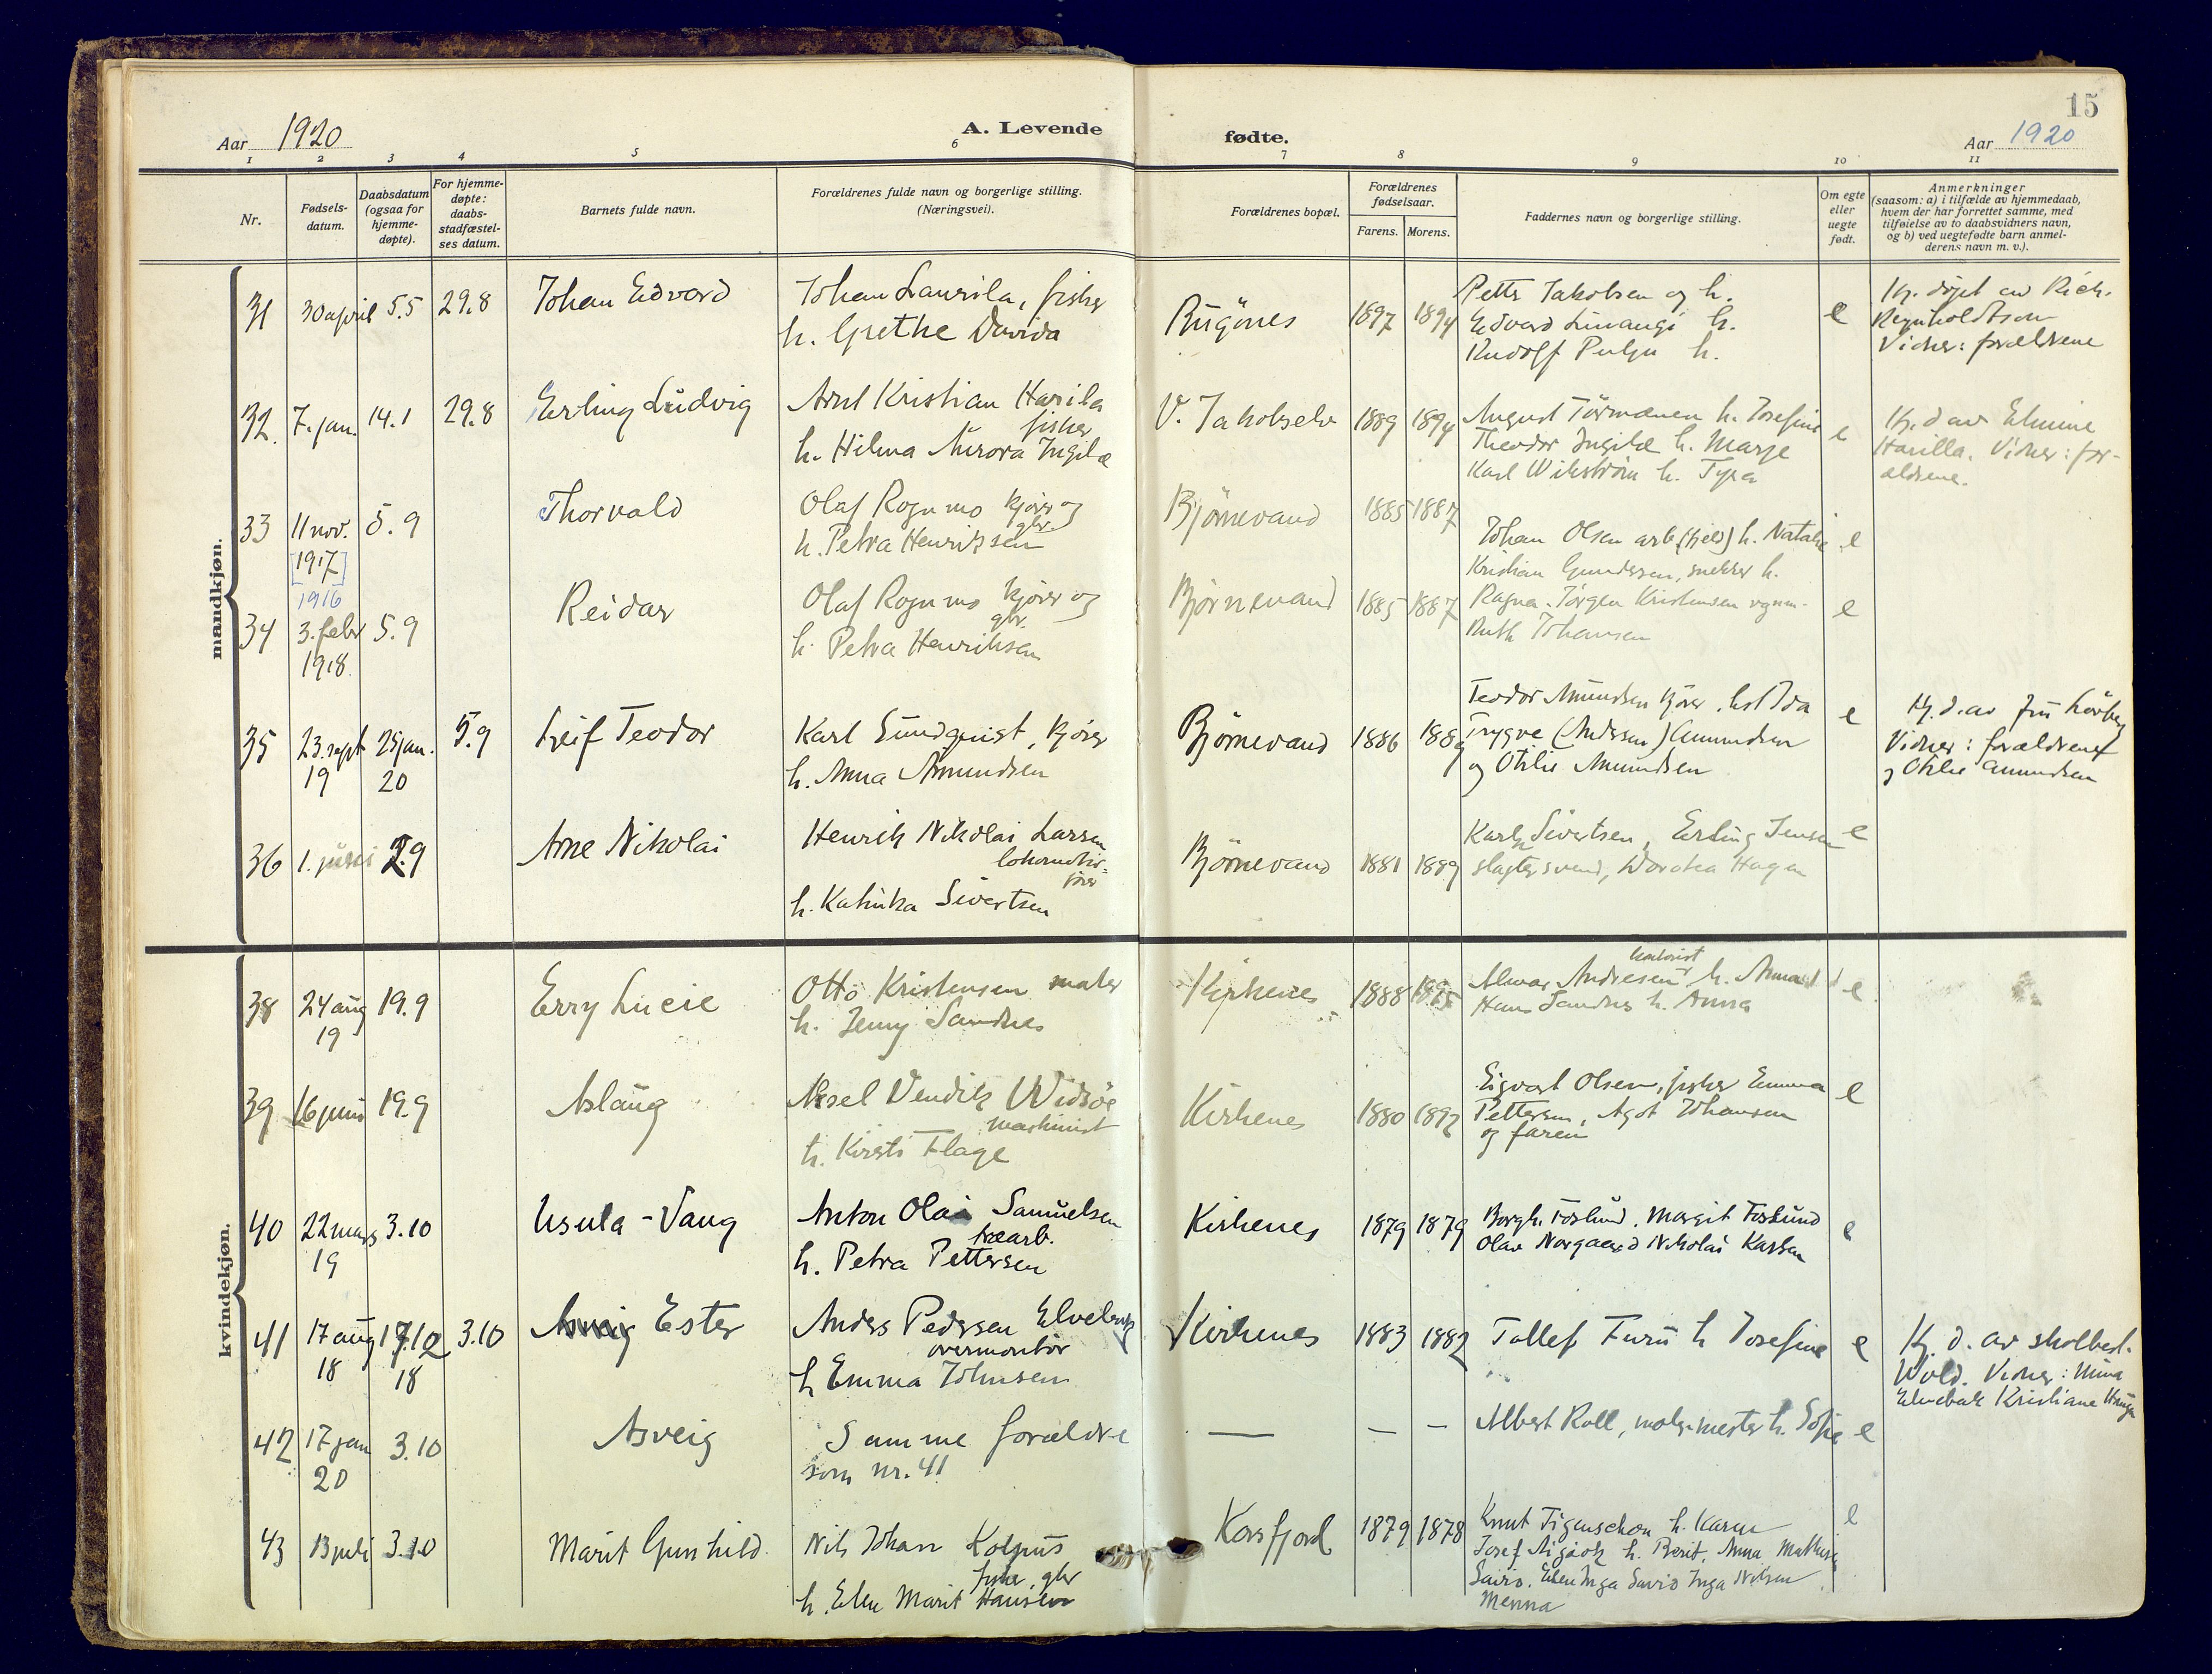 15
Aar 1920
A. Levende
fødte.
Aar 1920
1 2 3 4 5 6 7 8 9 10 11
Nr.
Fødsels-
datum.
Daabsdatum
(ogsaa for
hjemme-
døpte).
For hjemme-
døpte:
daabs-
stadfæstel-
ses datum.
Barnets fulde navn.
Forældrenes fulde navn og borgerlige stilling.
(Næringsvei).
Forældrenes bopæl.
Forældrenes
fødselsaar.
Farens. Morens.
Faddernes navn og borgerlige stilling.
Om egte
eller
uegte
født.
Anmerkninger
(saasom: a) i tilfælde av hjemmedaab,
hvem der har forrettet samme, med
tilføielse av to daabsvidners navn,
og b) ved uegtefødte barn anmel-
derens navn m. v.).
mandkjøn.
31 30 april 5.5 29.8 Johan Edvard
Johan Laurila, fisker
h. Grethe Davida
Bugønes 1897 1894
Petter Jakobsen og h.
Edvard h.
Rudolf h.
e
Hj. døpt av Rich.
Reynholdtsen
Vidner: forældrene
32. 7. jan. 14.1 29.8 Erling Ludvig
Arnt Kristian Harila
fisker
h. Hilma Aurora Ingilæ
V. Jakobselv 1889 1894
August Törmænen h. Josefine
Theodor Ingilæ h. Marje
Karl Wikström h. Tyra
e
Hj. d av Elmine
Harilla. Vidner: for-
ældrene.
33 11 nov. 5.9 Thorvald
[1917]
1916
Olaf Rognmo kjører og
gbr.
h. Petra Henriksen
Bjørnevand 1885 1887
Johan Olsen arb. h. Natalie e
Kristian Gundersen, snekker h.
34 3. febr 5.9 Reidar
1918.
Olaf Rognmo kjører og
gbr.
h. Petra Henriksen
Bjørnevand 1885 1887
Ragna. Jørgen Kristensen
Ruth Johansen
e
35 23. sept 25 jan. 5.9 Leif Teodor
19 20
Karl Sundquist, kjører
h. Anna Amundsen
Bjørnevand 1886 1889
Teodor Amundsen kjører. Ida
Trygve (Andersen) Amundsen
og Otilie Amundsen
e
Hj. d. av fru
Vidner: forældrene
og Otilie Amundsen
36 1. juni 2.9 Arne Nikolai
Henrik Nikolai Larsen
lokomotiv-
fører
h. Katinka Sivertsen
Bjørnevand 1881 1889
Karl Sivertsen, Erling Jensen
slagtersvend, Dorotea Hagen
e
kvindekjøn.
38 24 aug 19.9 Erry Lucie
19
Otto Kristensen maler
h. Jenny Sandnes
Kirkenes 1888 1895
Andresen h. Anna
Hans Sandnes h. Anna
e
39 16 juni 19.9 Aslaug
Aksel Vendik Widsøe
maskinist
h. Kirsti Flage
Kirkenes 1880 1892
Sigvart Olsen, fisker Emma
Pettersen, Agot Johansen
og faren
e
40 22 mars 3.10 Usula-Vaug
19
Anton Olai Samuelsen
træarb.
h. Petra Pettersen
Kirkenes 1879 1879
Borgh. Foslund. Margit Foslund
Olav Norgaard Nikolai Karlsen
e
41 17 aug 17.12 3.10 Ester
18 18
Anders Pedersen
overmontør
h Emma Johnsen
Kirkenes 1883 1882
Tollef Furu h Josefine
e
Hj. d. av skolbest.
Wold. Vidner: Mina
Elvebak Kristiane
42 17 jan 3.10 Asveig
20
Samme forældre
som nr. 41
— — —
Albert Roll, malermester h. Sofie
e
43 13 juli 3.10 Marit Gunhild.
Nils Johan Kolpus
fisker, gbr
h. Elen Marit Hansen
Korsfjord 1879 1878
Knut Figenschou h. Karen
Josef h. Berit. Anna Mathisen
Savio. Ellen Inga Savio Inga Nilsen
Menna
e